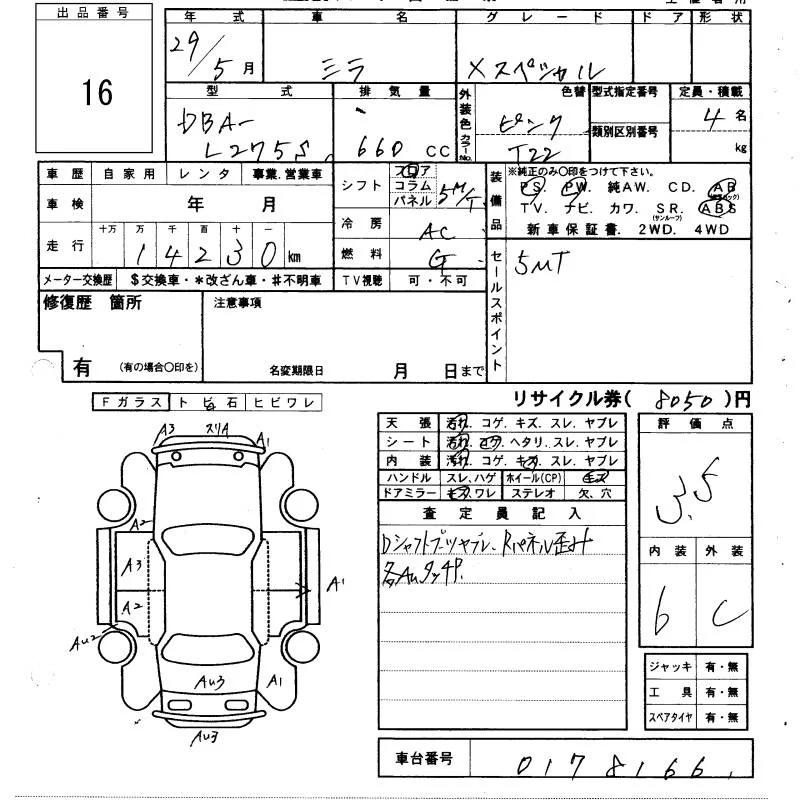 出品番号
16
年式 車名 グレード ドア 形状
29/5月 ミラ Xスペシャル
型式 排気量 外装色 カラーNo. 色替 型式指定番号 定員・積載
DBA-L275S 660CC ピンク T22 類別区別番号 4名 kg
車歴 自家用 レンタ 事業.営業車
車検 年 月
走行 十万 万 千 百 十 一
14230km
メーター交換歴 $交換車・*改ざん車・#不明車
シフト フロア コラム パネル 5M/T
冷房 AC
燃料 G
TV視聴 可・不可
装備品 ※純正のみ〇印をつけて下さい。
PS. PW. 純AW. CD. AB
TV. ナビ. カワ. SR.(サンルーフ) ABS
新車保証書. 2WD. 4WD
セールスポイント
5MT
修復歴 箇所
有 (有の場合〇印を)
注意事項
名変期限日 月 日まで
リサイクル券( 8050 )円
Fガラス トビ石 ヒビワレ
天張 汚れ. コゲ. キズ. スレ. ヤブレ
シート 汚れ. コゲ. ヘタリ. スレ. ヤブレ
内装 汚れ. コゲ. キズ. スレ. ヤブレ
ハンドル スレ.ハゲ ホイール(CP) キズ
ドアミラー キズ.ワレ ステレオ 欠.穴
査定員記入
Dシャフトブーツヤブレ、Rパネル歪サ
各AUタッチP.
評価点
3.5
内装 外装
6 C
ジャッキ 有・無
工具 有・無
スペアタイヤ 有・無
車台番号 0178166
A3 スリA A1
A2
A3
A2 A1
AU2
AU3 A1
AU3